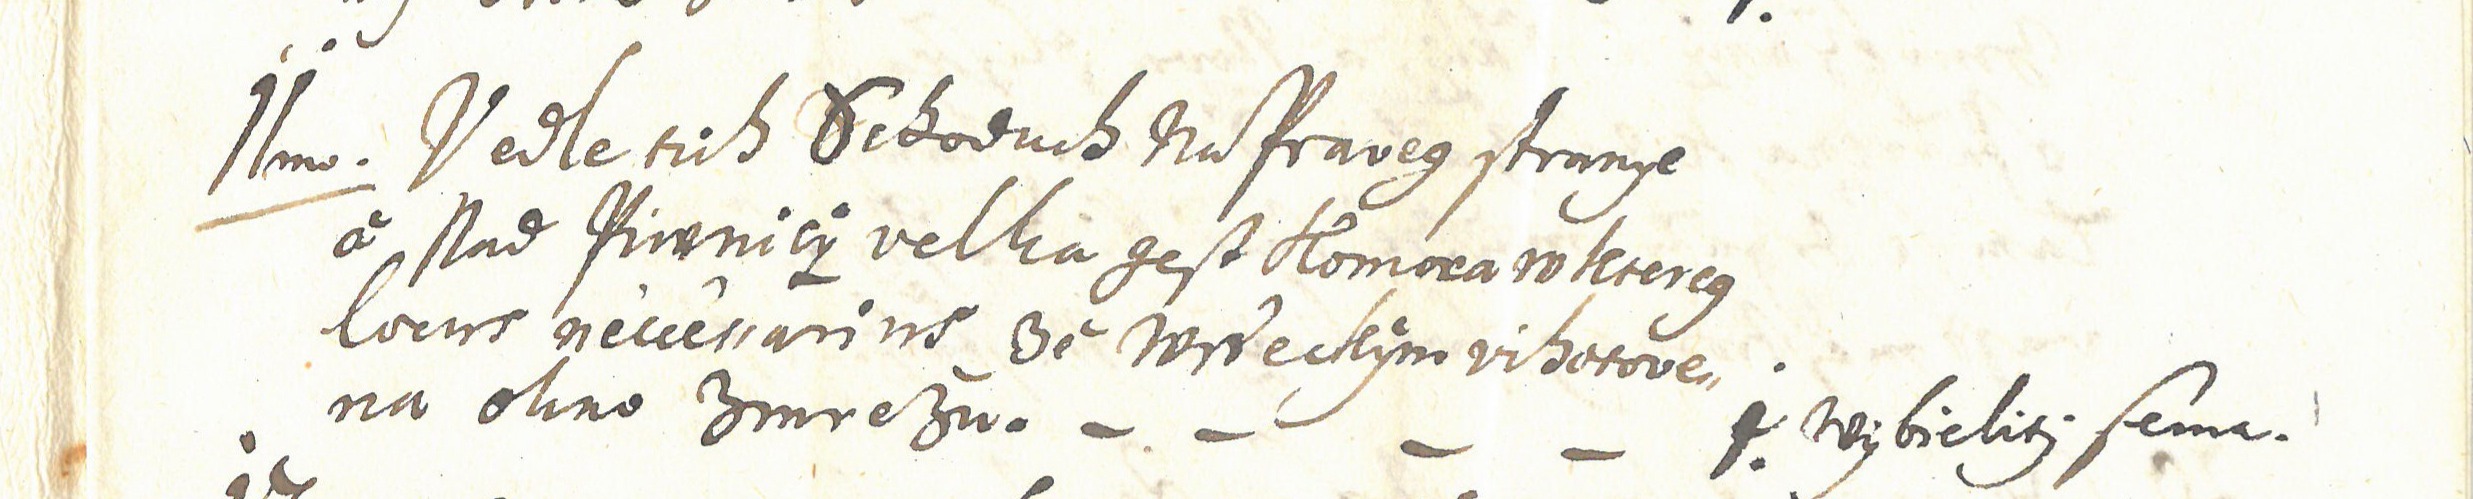 11mo. Vedle tich Schoduch Na Praveg stranye
a Nad Piwnicÿ velka gest Komora w ktereg
locus necessarius ze wsseckÿm vihotove„
na okno zmrežu. — — — — f. wÿbielitj sema.